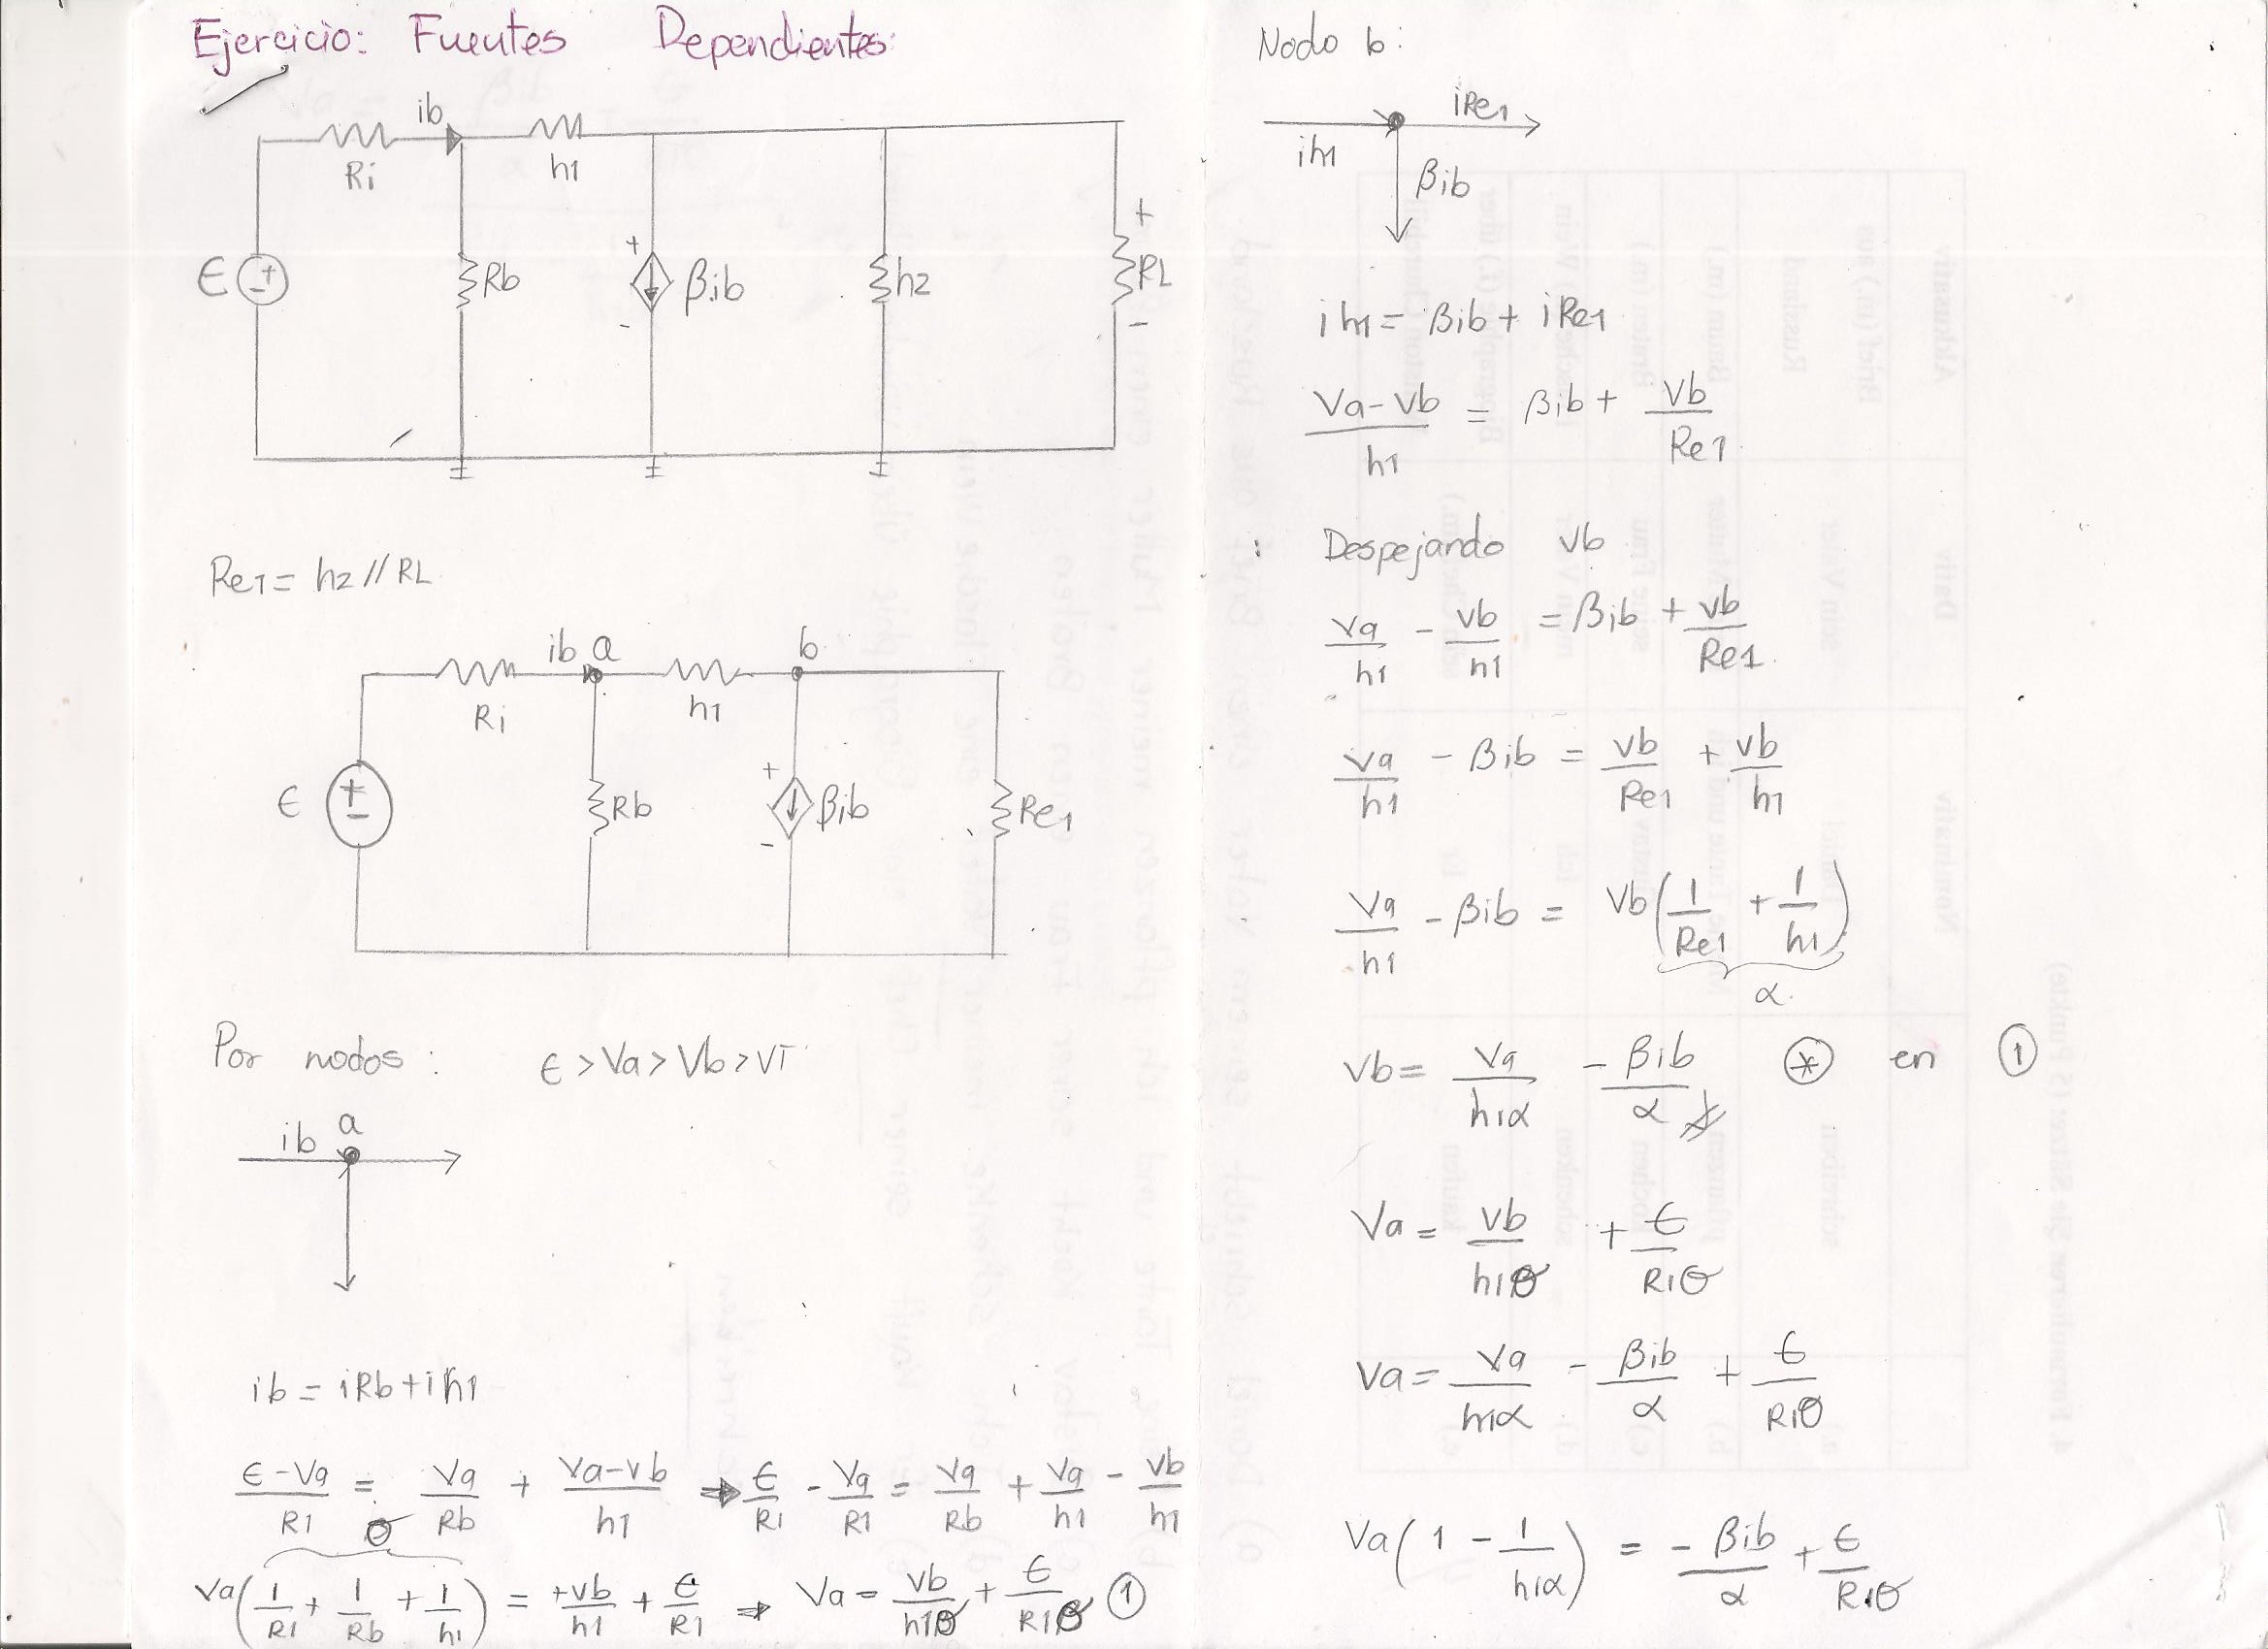 Ejercicio: Fuentes Dependientes:
ib
Ri
h1
ϵ
+
-
Rb
+
-
βib
h2
+
RL
-
Re1 = h2 // RL
ib a
b
Ri
h1
ϵ
+
-
Rb
+
-
βib
Re1
Por nodos: ϵ > Va > Vb > VT
ib a
ib = iRb + ih1
(ϵ - Va)/R1 = Va/Rb + (Va - Vb)/h1 ⇒ ϵ/R1 - Va/R1 = Va/Rb + Va/h1 - Vb/h1
θ
Va(1/R1 + 1/Rb + 1/h1) = +Vb/h1 + ϵ/R1 ⇒ Va = Vb/h1θ + ϵ/R1θ ①
Nodo b:
iRe1
ih1
βib
ih1 = βib + iRe1
(Va - Vb)/h1 = βib + Vb/Re1
Despejando Vb
Va/h1 - Vb/h1 = βib + Vb/Re1
Va/h1 - βib = Vb/Re1 + Vb/h1
Va/h1 - βib = Vb(1/Re1 + 1/h1)
α
Vb = Va/h1α - βib/α ⊛ en ①
Va = Vb/h1θ + ϵ/R1θ
Va = Va/h1α - βib/α + ϵ/R1θ
Va(1 - 1/h1α) = - βib/α + ϵ/R1θ